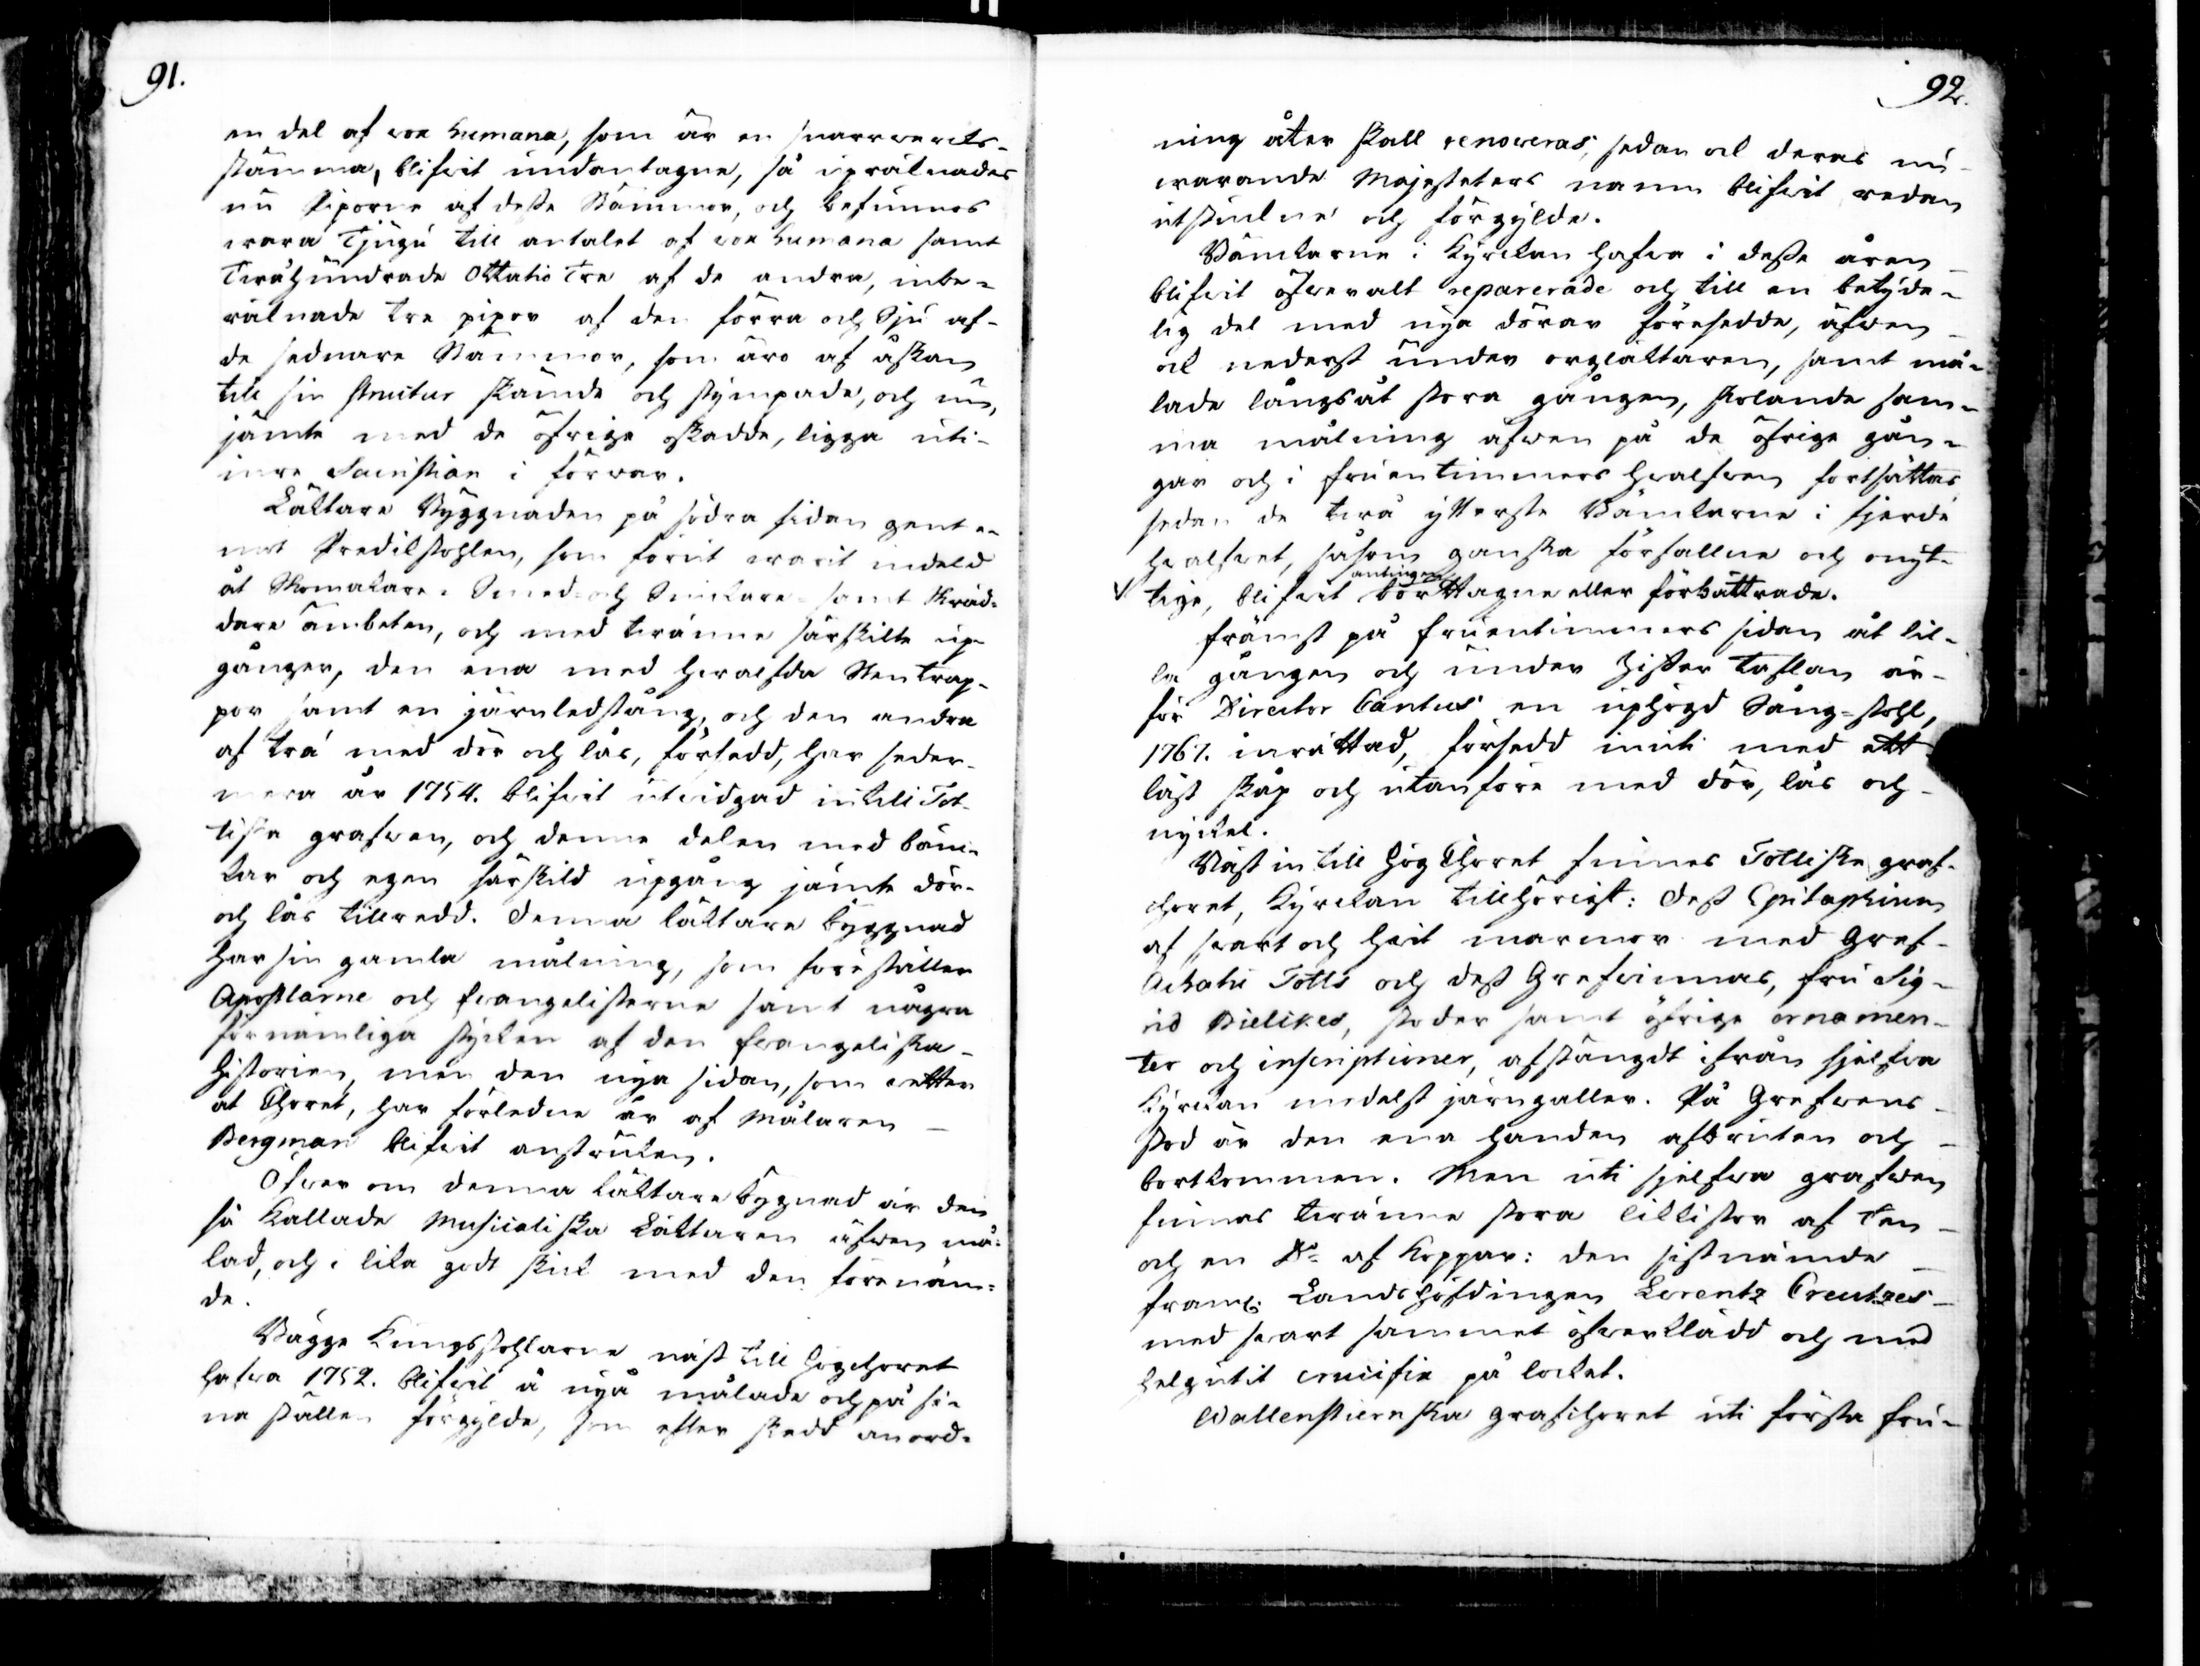 91.
en del af vox humana, som är en snarrwercks-
stämma, blifwit undantagne, så upräknades
nu Piporne af desse Stämmor, och befunnos
wara Tjugu till antalet af vox humana samt
Twåhundrade Ottatio Tre af de andra, inbe-
räknade tre pipor af den förra och Sju af
de sednare Stämmor, som äro af åskan
till sin structur skämde och stympade, och nu,
jämte med de öfrige oskadde, ligga uti
inre Sacristian i förwar.
Läktare Byggnaden på södra sidan gent e-
mot Predikstohlen, som förut warit indeld
åt Skomakare- Smed- och Snickare- samt Skräd-
dare Ämbeten, och med twänne särskilte up-
gångar, den ena med hwalfda Stentrap-
por samt en järnledstång, och den andra
af trä med dör och lås, försedd, har seder-
mera år 1754. blifwit utwidgad intill Tot-
tiska grafwen, och denne delen med bänc-
kar och egen särskild upgång jämte dör
och lås tillredd. Denna läktare byggnad
har sin gamla målning, som föreställer
Apostlarne och Evangelisterne samt några
förnämliga stycken af den Evangeliska
historien, men den nya sidan, som wetter
åt Choret, har förledne år af Målaren
Bergman blifwit anstruken.
Öfwer om denna läktarebygnad är den
så kallade Musicaliska Läktaren äfwen må-
lad, och i lika godt skick med den förenäm-
de.
Bägge Kungsstohlarne näst till högchoret
hafwa 1752. blifwit å nyo målade och på si-
na ställen förgylde, som efter skedd anord-
92.
ning åter skall renoveras, sedan ock deras nu-
warande Majesteters namn blifwit redan
utstuckne och förgylde.
Bänckarne i Kyrckan hafwa i desse åren
blifwit öfweralt reparerade och till en betyde-
lig del med nya dörar försedde, äfwen
ock nederst under orgläktaren, samt må-
lade långsåt stora gången, skolande sam-
ma målning äfwen på de öfrige gån-
gar och i fruentimmers hwalfwen fortsättas
sedan de twå ytterste Bänckarne i fjerde
hwalfwet, såsom ganska förfallne och onyt-
antingen
tige, blifwit borttagne eller förbättrade.
Främst på fruentimmers sidan åt lil-
la gången och under Ziffer taflan är
för Director Cantus en uphögd Sång-stohl,
1767. inrättad, försedd inuti med ett
låst skåp och utanföre med dör, lås och
nyckel.
Näst in till Hög Choret finnes Tottiska graf-
choret, Kyrckan tillhörigt: Dess Epitaphium
af swart och hwit marmor med Gref
Achatii Totts och dess Grefwinnas, fru Sig-
rid Bielkes, stoder samt öfrige ornamen-
ter och inscriptioner, afstängdt ifrån sjelfwa
Kyrckan medelst järngaller. På Grefwens
stod är den ena handen afbruten och
bortkommen. Men uti sjelfwa grafwen
finnas twänne stora likkistor af Ten
och en Do af Koppar: den sistnämde
fram. Landshöfdingen Lorentz Creutzes
med swart sammet öfwerklädd och med
helgutit crucifix på locket.
Wallenstiernska grafchoret uti första fru-